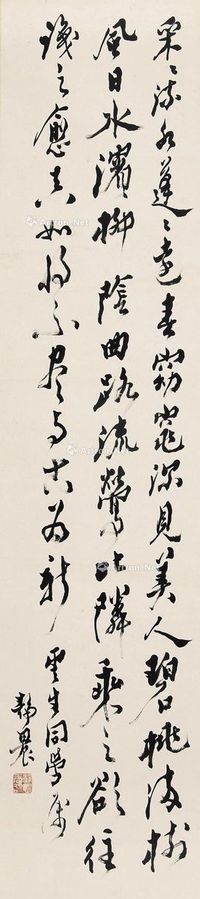 采〻流水蓬〻遠春窈窕深見美人碧桃滿樹
風日水濱柳陰曲路流鶯比隣乘之欲往
識之愈真如將不盡與古為新 雲生同學属
靜農
Artron.Net